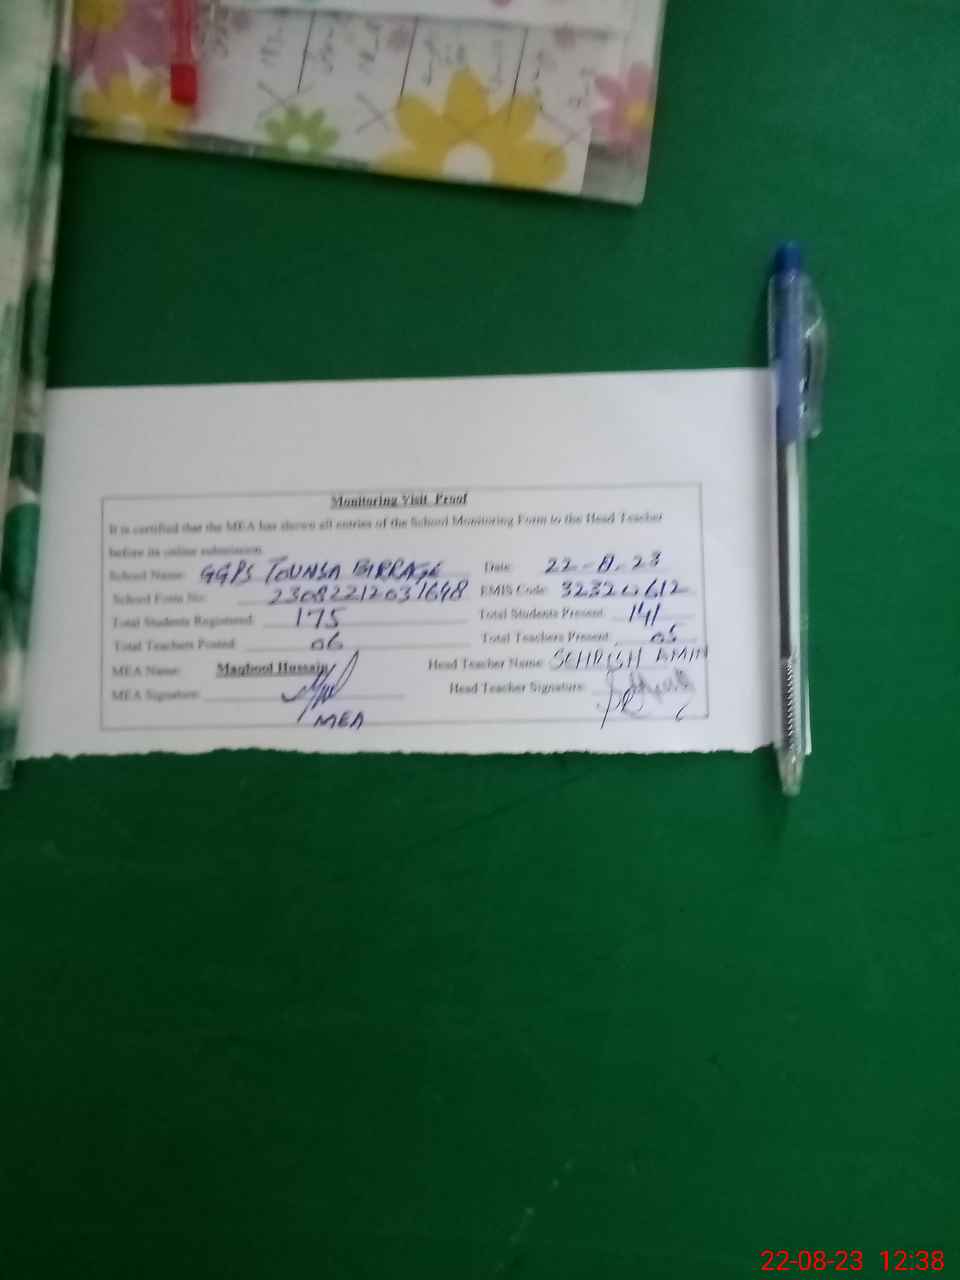 Monitoring Visit Proof
It is certified that the MEA has shown all entries of the School Monitoring Form to the Head Teacher
before its online submission
School Name: GGPS TOUNSA BIRRAGE Date: 22-8-23
School Form No: 23082212031648 EMIS Code: 32320612
Total Students Registered: 175 Total Students Present: 141
Total Teachers Posted: 06 Total Teachers Present: 05
MEA Name: Maqbool Hussain Head Teacher Name: SEHRISH AMIN
MEA Signature: Head Teacher Signature:
MEA
22-08-23 12:38